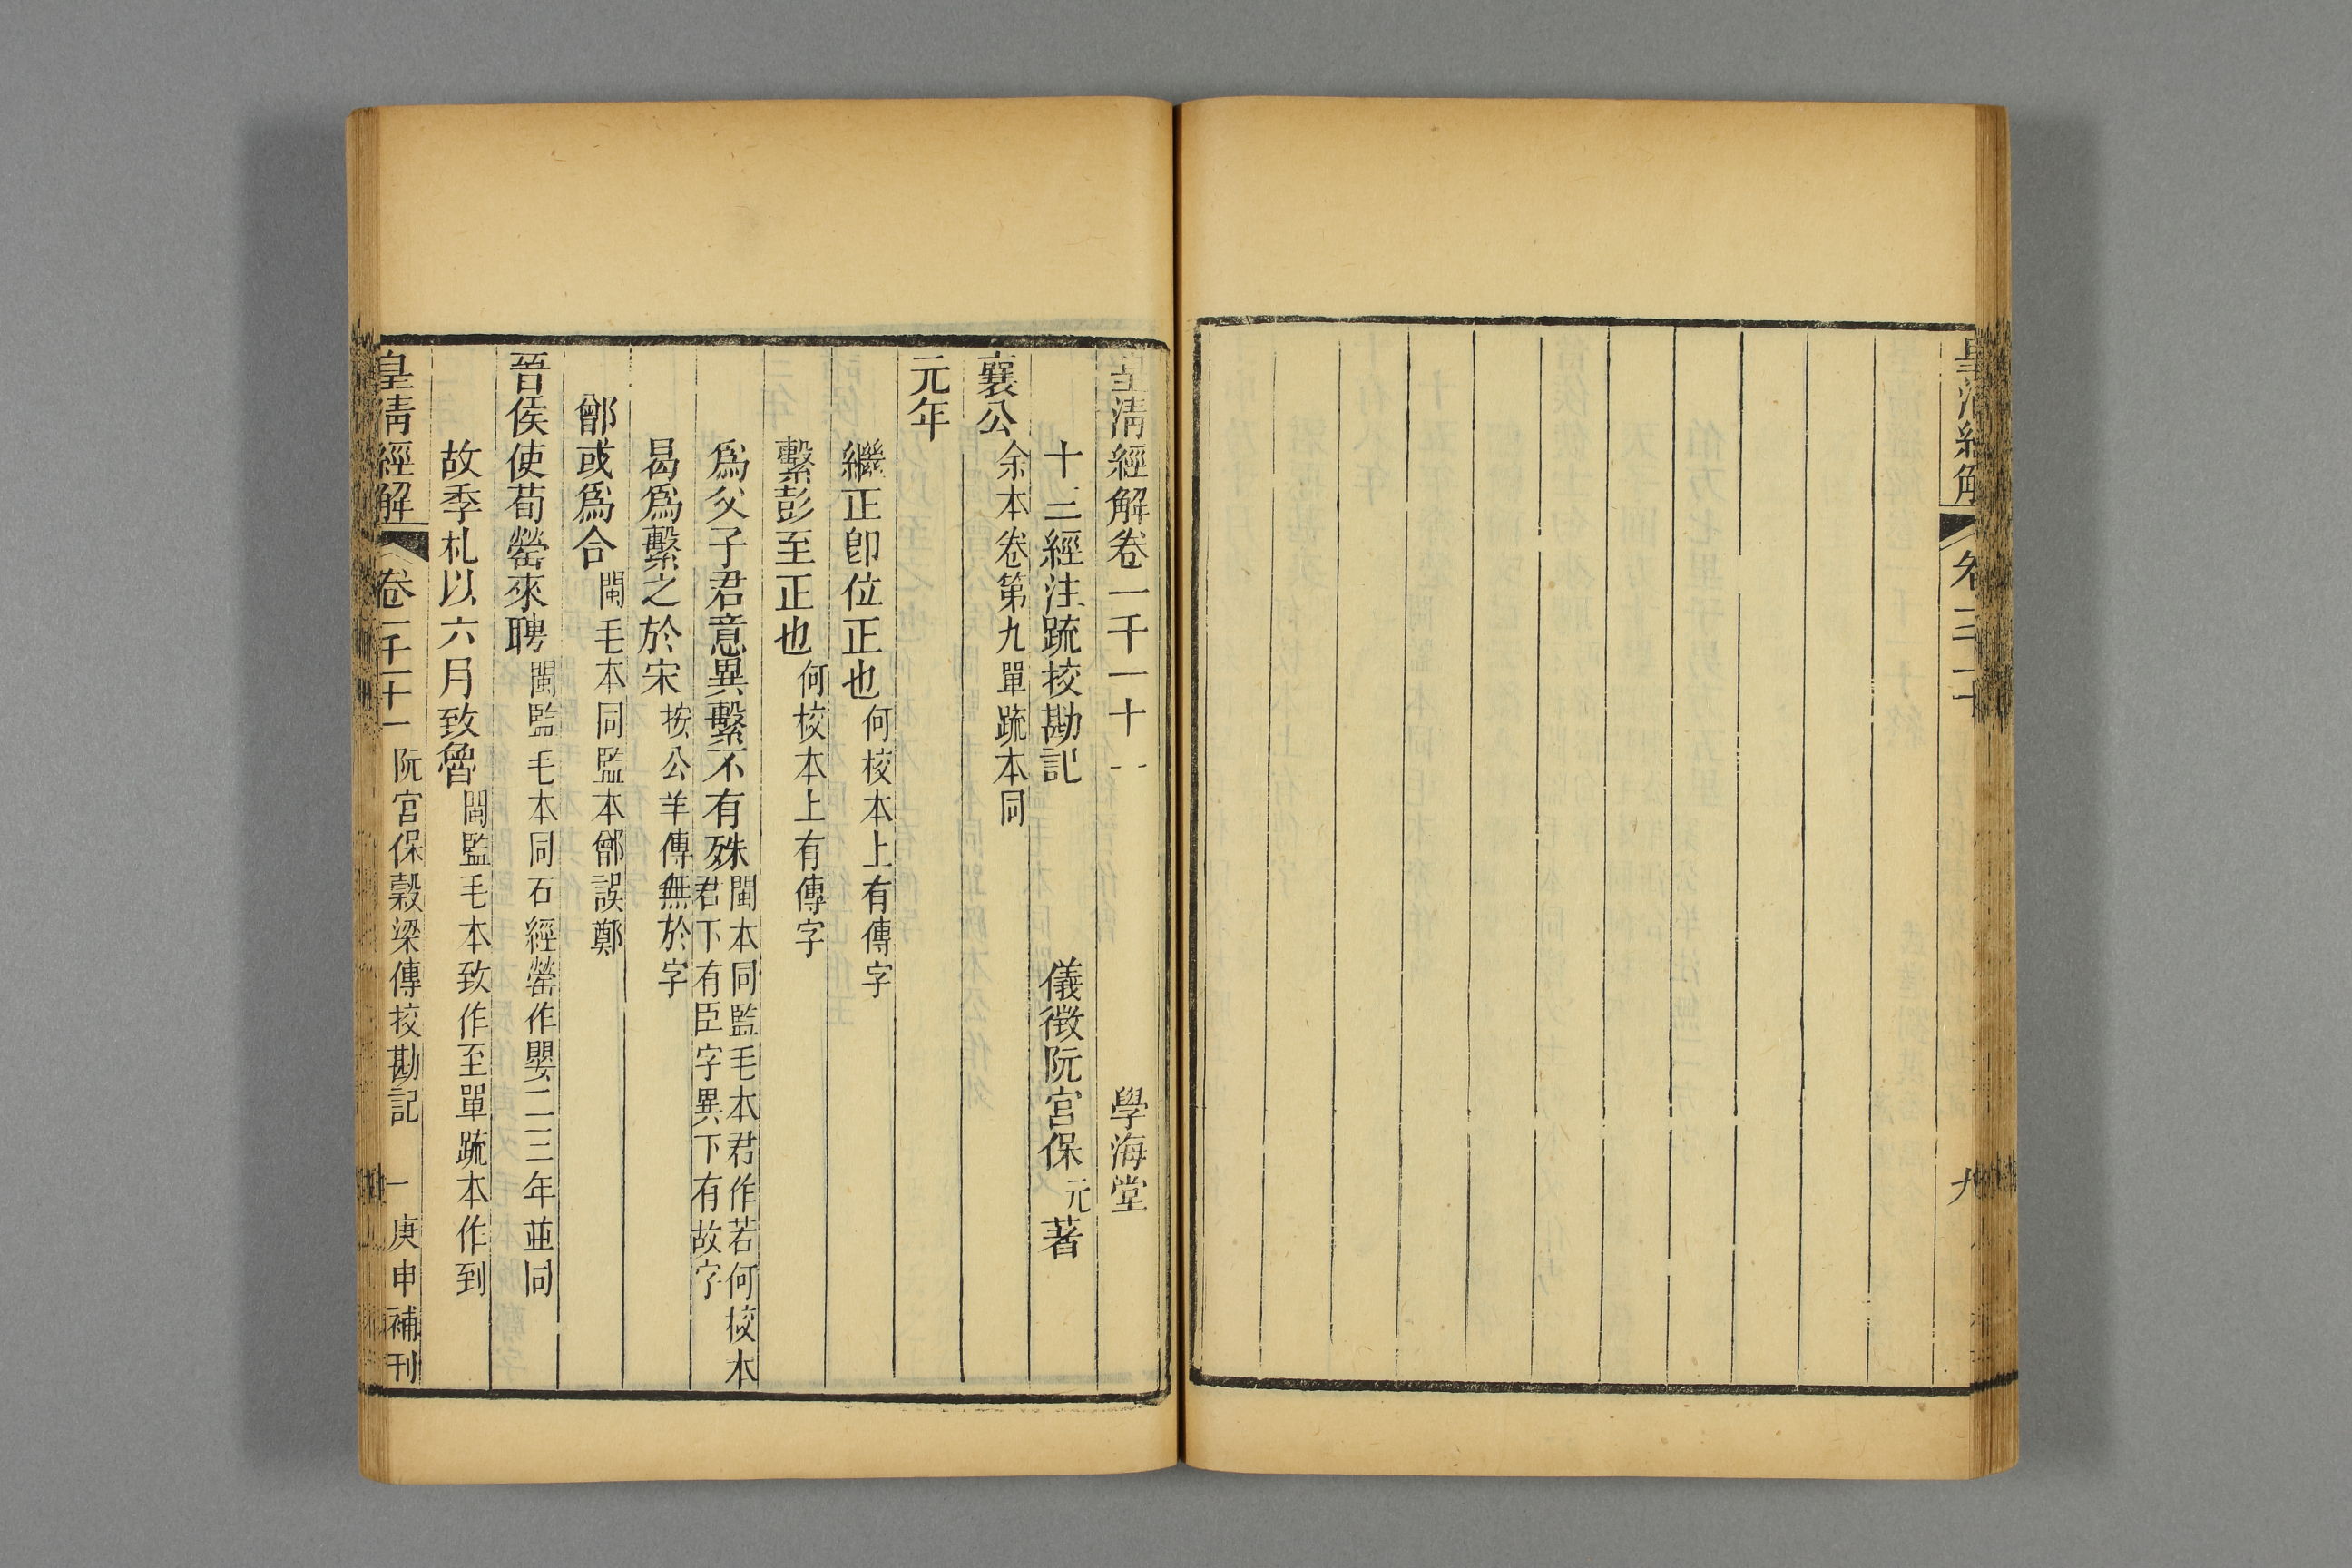 皇清經解
九
皇清經解卷一千一十一 學海堂
十三經注疏挍勘記 儀徵阮宮保元著
襄公余本卷第九單疏本同
元年
繼正卽位正也何校本上有傳字
繫彭至正也何校本上有傳字
爲父子君意異繫不有殊閩本同監毛本君作若何校本
君下有臣字異下有故字
曷爲繫之於宋按公羊傳無於字
鄫或爲合閩毛本同監本鄫誤鄭
晉侯使荀罃來聘閩監毛本同石經罃作嬰二三年並同
故季札以六月致魯閩監毛本致作至單疏本作到
皇清經解 卷一千一十一 阮宮保穀梁傳挍勘記 一 庚申補刊